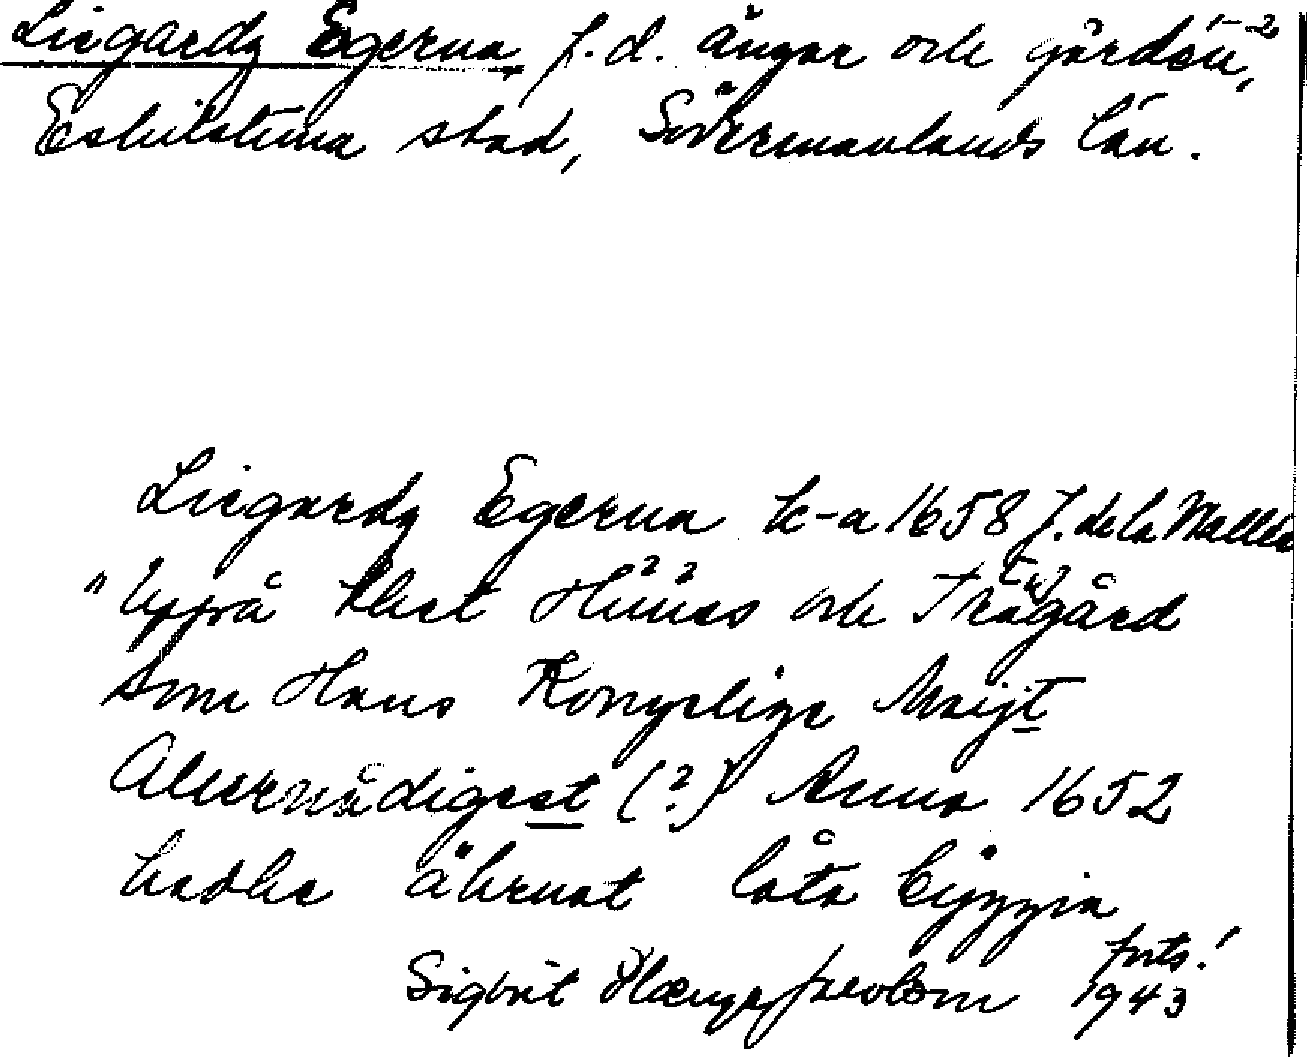 Liegardz Egerna, f.d. ängar och gärden,
Eskilstuna stad, Södermanlands län.
Liegardz Egerna k-a 1658 J. de la Vallée
"Uppå thet Huuss och Trägård
som Hans Kongelige Maijt
Allernådigest (?) Anno 1652
hadhe ährnat låta byggia
Sigvrit 1943
forts!